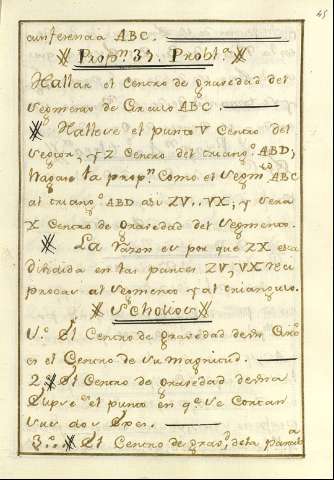 45
cunferencia ABC.
Propn. 35. Probla.
Hallar el Centro de gravedad del
segmento de Circulo ABC.
Hallese el punto V Centro del
sector, y Z Centro del triango. ABD,
hagase la propn. Como el segmto. ABC
al triango. ABD asi ZV.. VX, y sera
X Centro de Gravedad del segmento.
La razon es por que ZX esta
dividida en las partes ZV, VX reci
procas al segmento y al triangulo.
Scholios
1.º El Centro de gravedad de un Circo.
es el Centro de su magnitud.
2.º El Centro de Gravedad de una
Elipse es el punto en qe. se Cortan
sus dos Exes.
3.º El Centro de gravd. de la Parabola